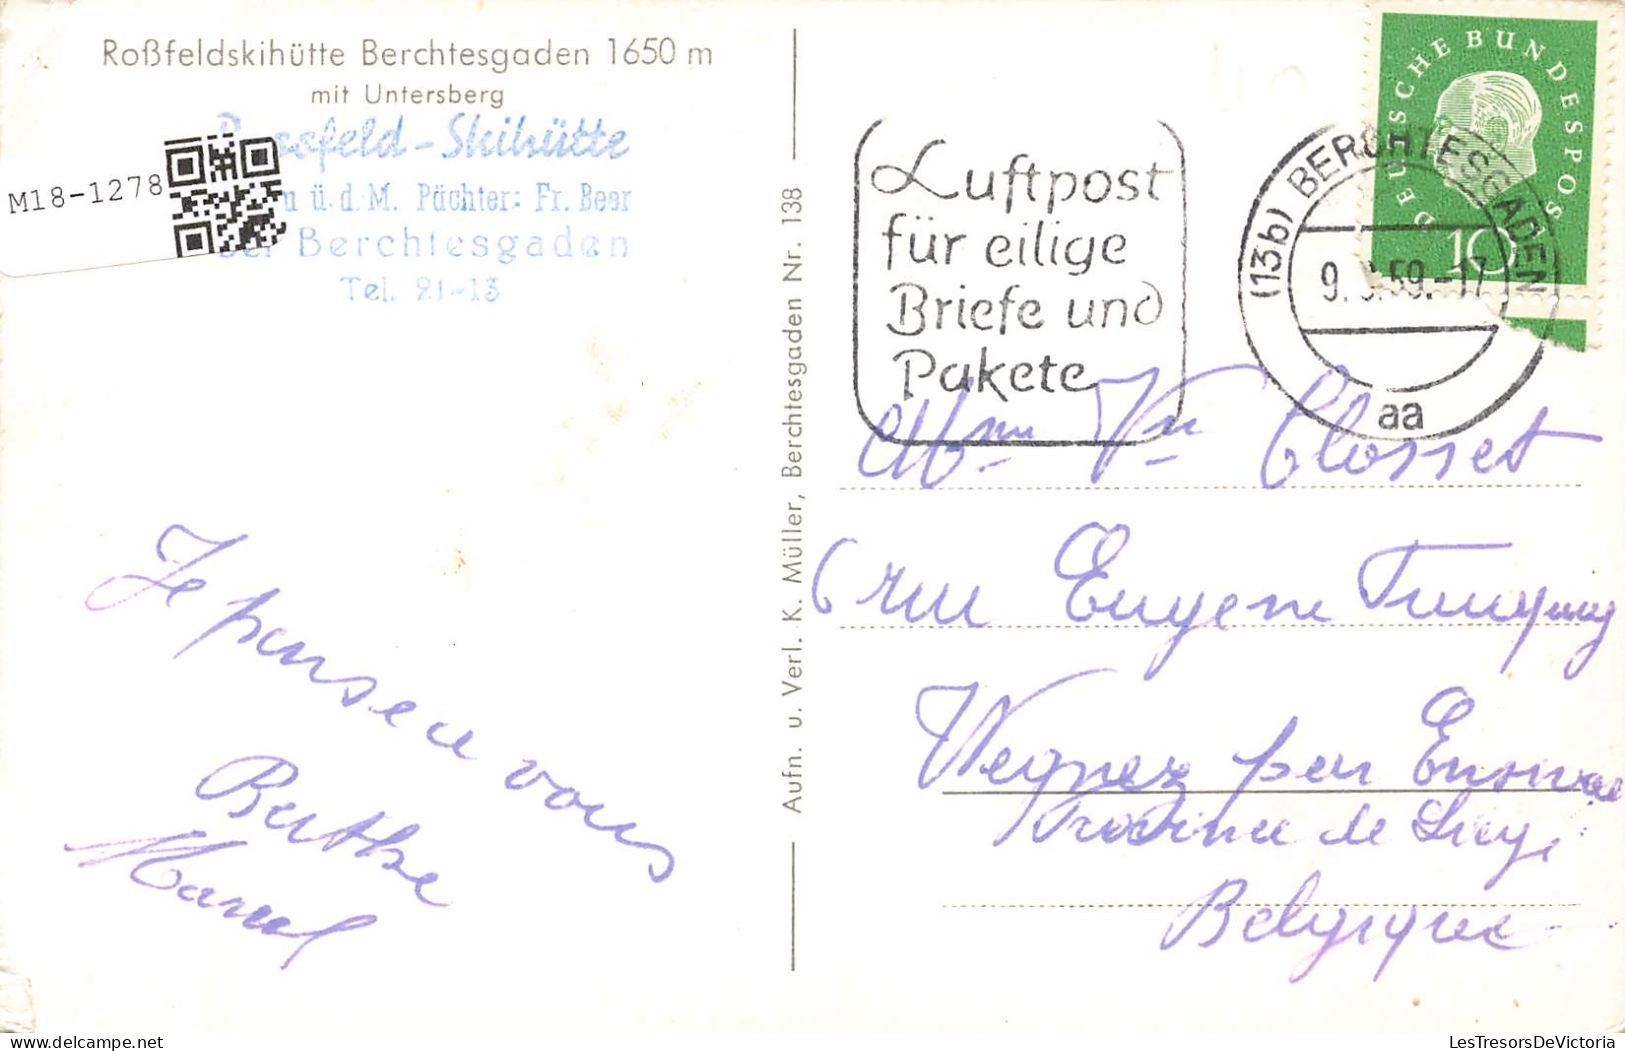 Roßfeldskihütte Berchtesgaden 1650 m
mit Untersberg
Rossfeld-Skihütte
ü.d.M. Pächter: Fr. Beer
bei Berchtesgaden
Tel. 21-13
M18-1278
Je pense a vous
Berthe
Marcel
Aufn. u. Verl. K. Müller, Berchtesgaden Nr. 138
Luftpost
für eilige
Briefe und
Pakete
(13b) BERCHTESGADEN
59.-17
aa
DEUTSCHE BUNDESPOST
10
Mme Vve Closset
6 rue Eugene
Wegnez par Ensival
Province de Liege
Belgique
delcampe.net
LesTresorsDeVictoria